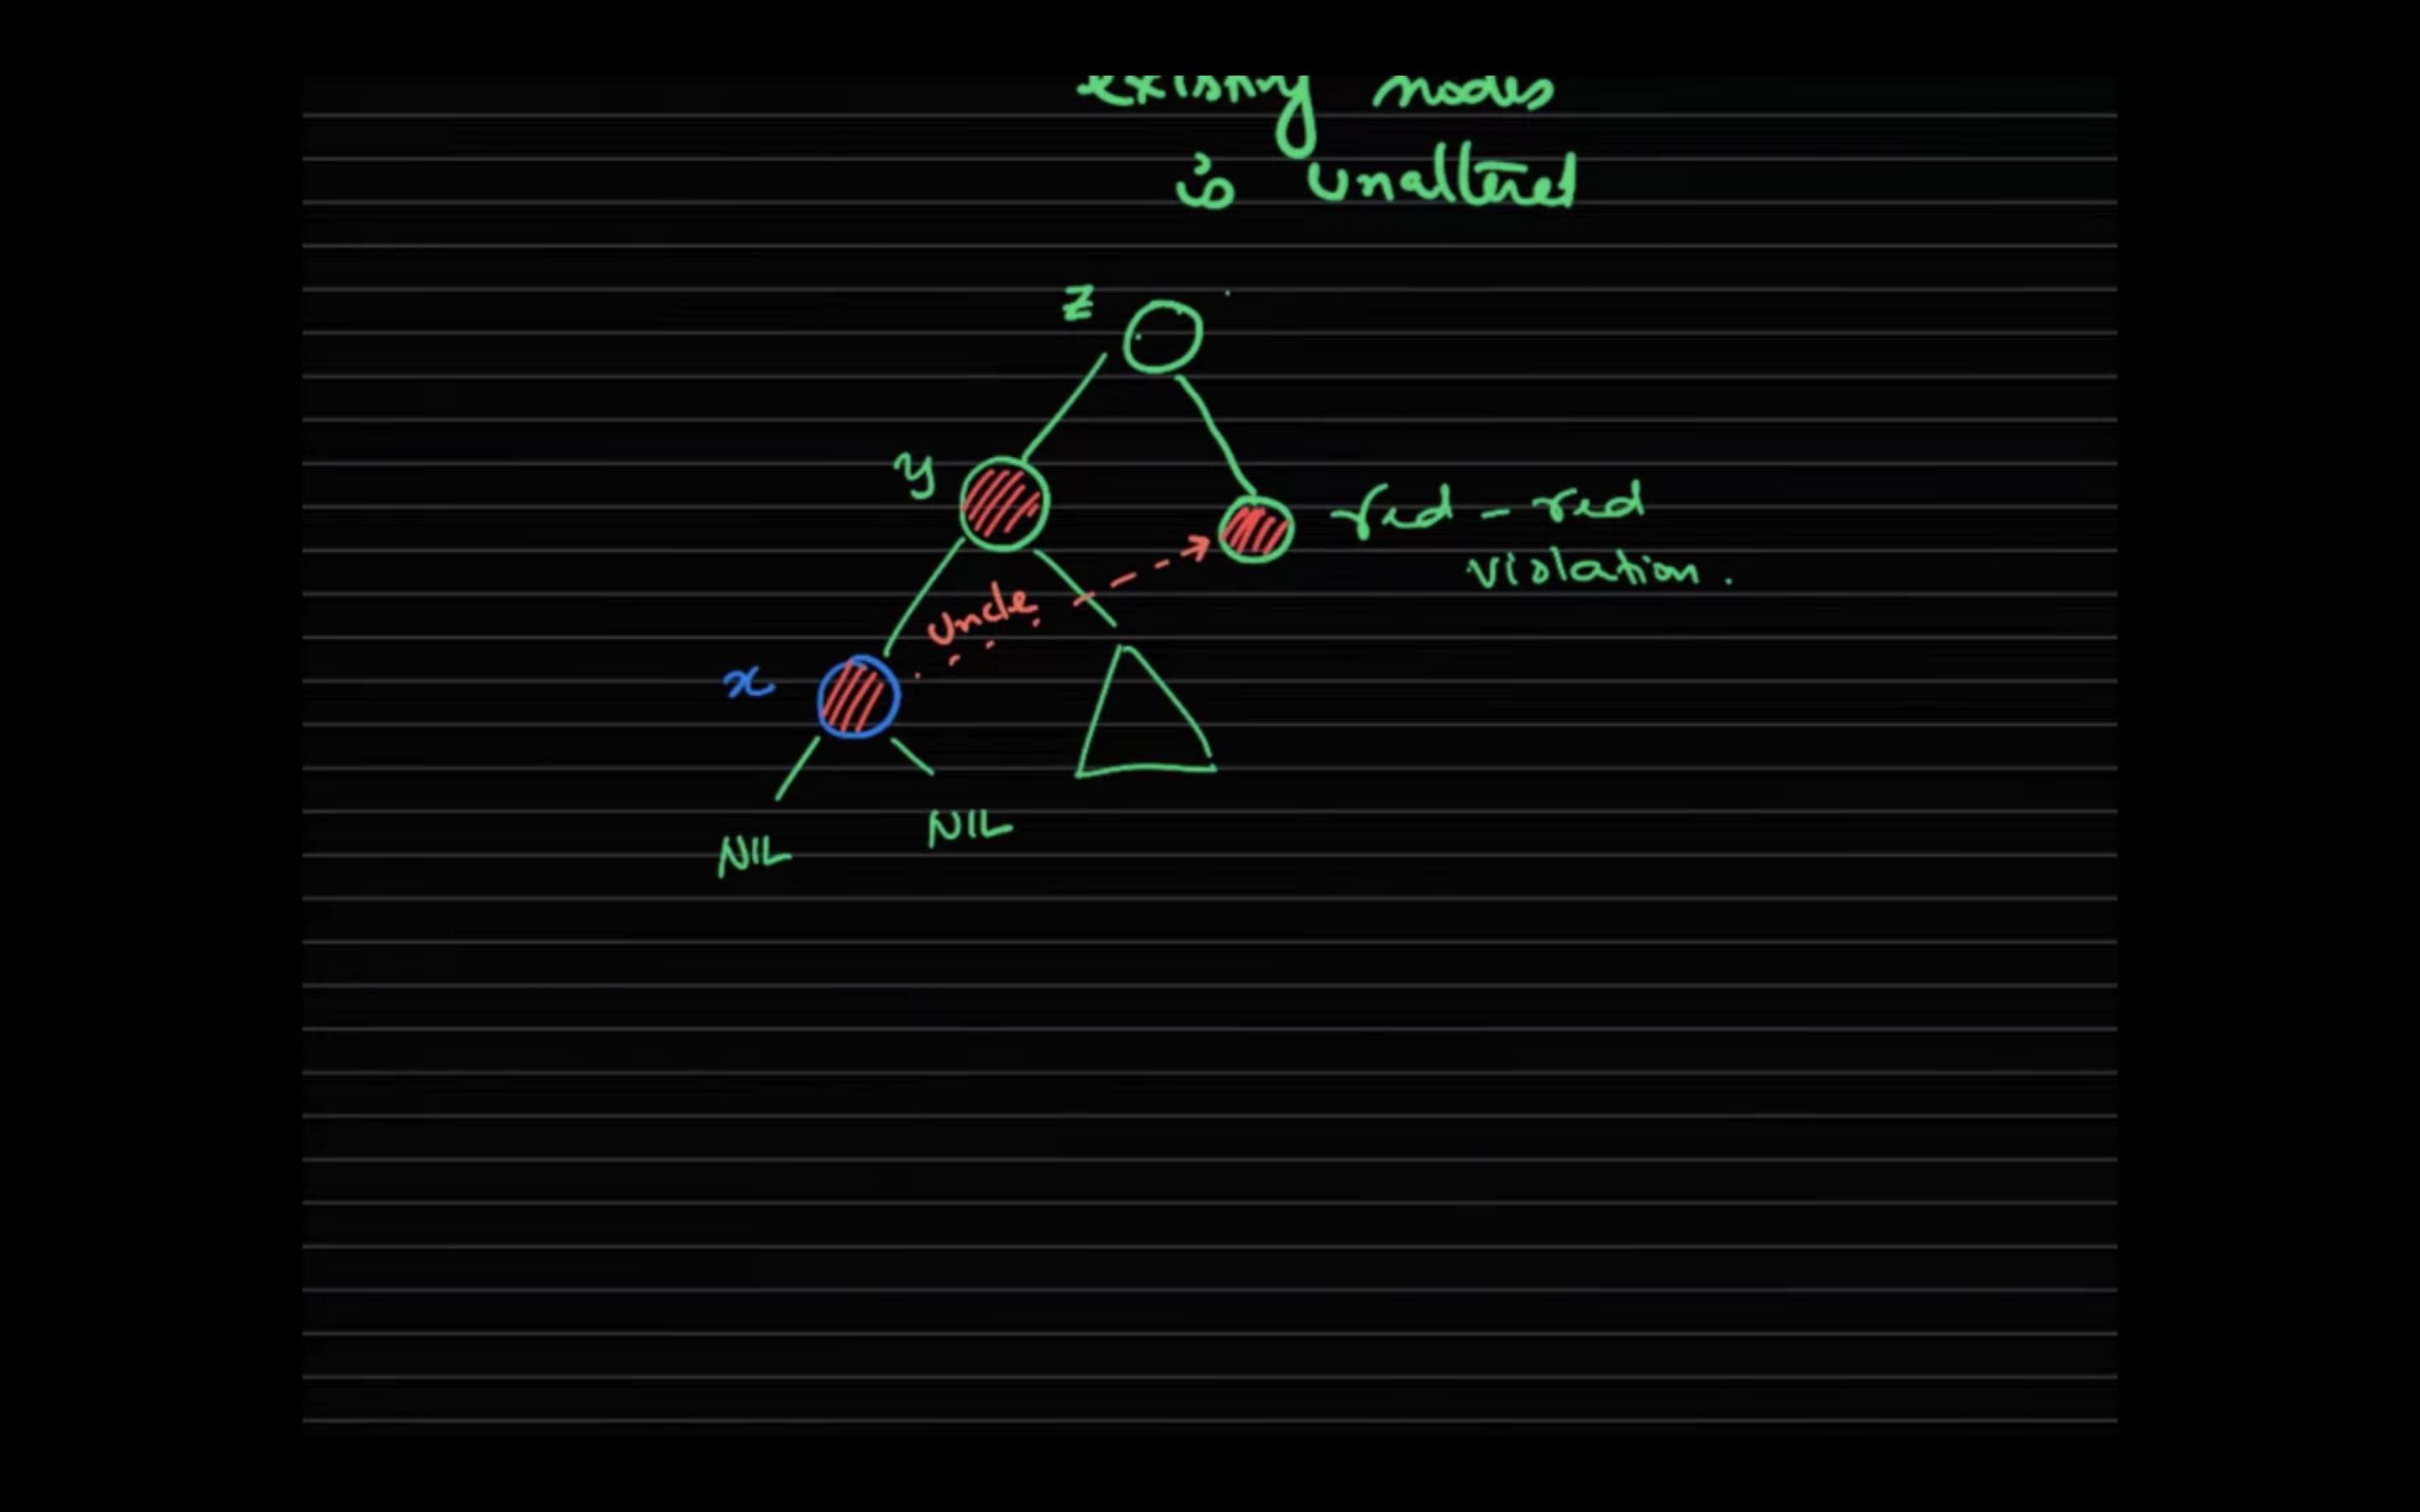 existing nodes
is unaltered
z
y
red - red
violation.
Uncle
x
NIL
NIL